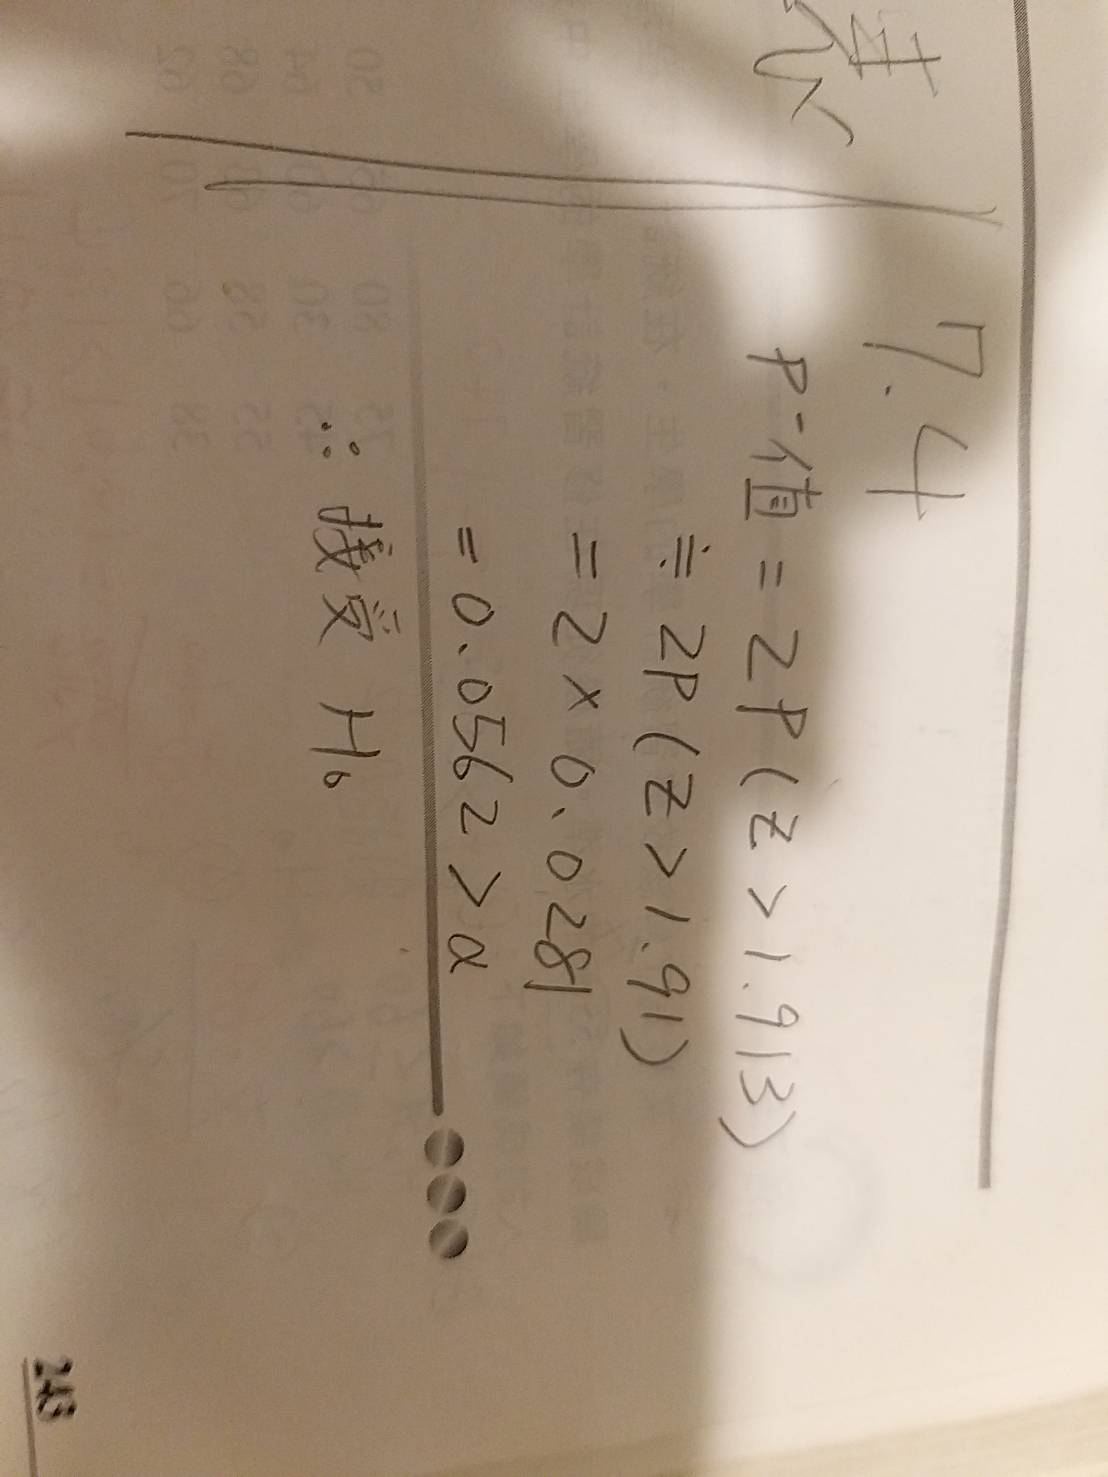 7.4
P-值 = 2P(Z > 1.913)
≒ 2P(Z > 1.91)
= 2 × 0.0281
= 0.0562 > α
∴ 接受 H₀
243